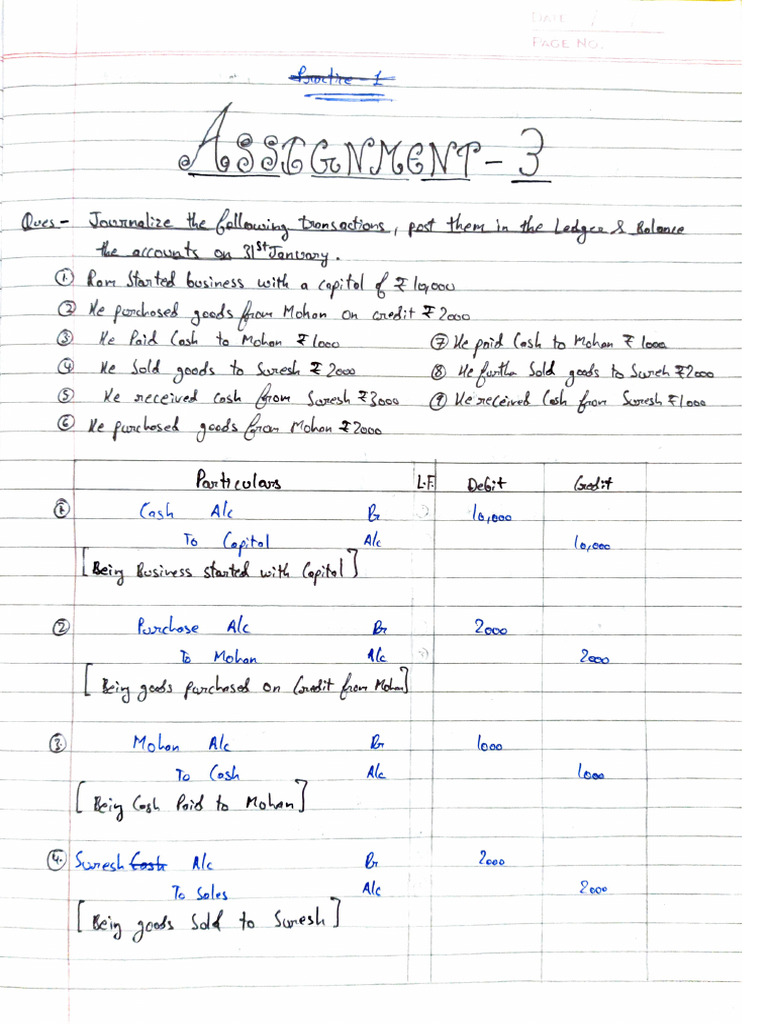 DATE / /
PAGE NO.
Practice - 1
ASSIGNMENT - 3
Ques - Journalize the following transactions, post them in the Ledger & Balance
the accounts on 31st January.
① Ram Started business with a capital of ₹ 10,000
② He purchased goods from Mohan on credit ₹ 2000
③ He Paid Cash to Mohan ₹ 1000
④ He Sold goods to Suresh ₹ 2000
⑤ He received cash from Suresh ₹ 3000
⑥ He purchased goods from Mohan ₹ 2000
⑦ He paid Cash to Mohan ₹ 1000
⑧ He furthe Sold goods to Sureh ₹2000
⑨ He received Cash from Suresh ₹1000
Particulars L.F. Debit Credit
① Cash A/c Dr 10,000
To Capital A/c 10,000
[Being Business started with Capital]
② Purchase A/c Dr 2000
To Mohan A/c 2000
[Being goods purchased on Credit from Mohan]
③ Mohan A/c Dr 1000
To Cash A/c 1000
[Being Cash Paid to Mohan]
④ Suresh Cash A/c Dr 2000
To Sales A/c 2000
[Being goods Sold to Suresh]